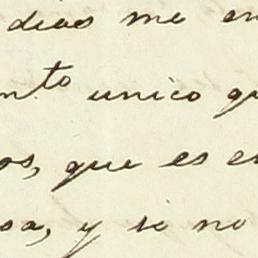 dias me en
nto unico qu
os, que es es
sa, y si no